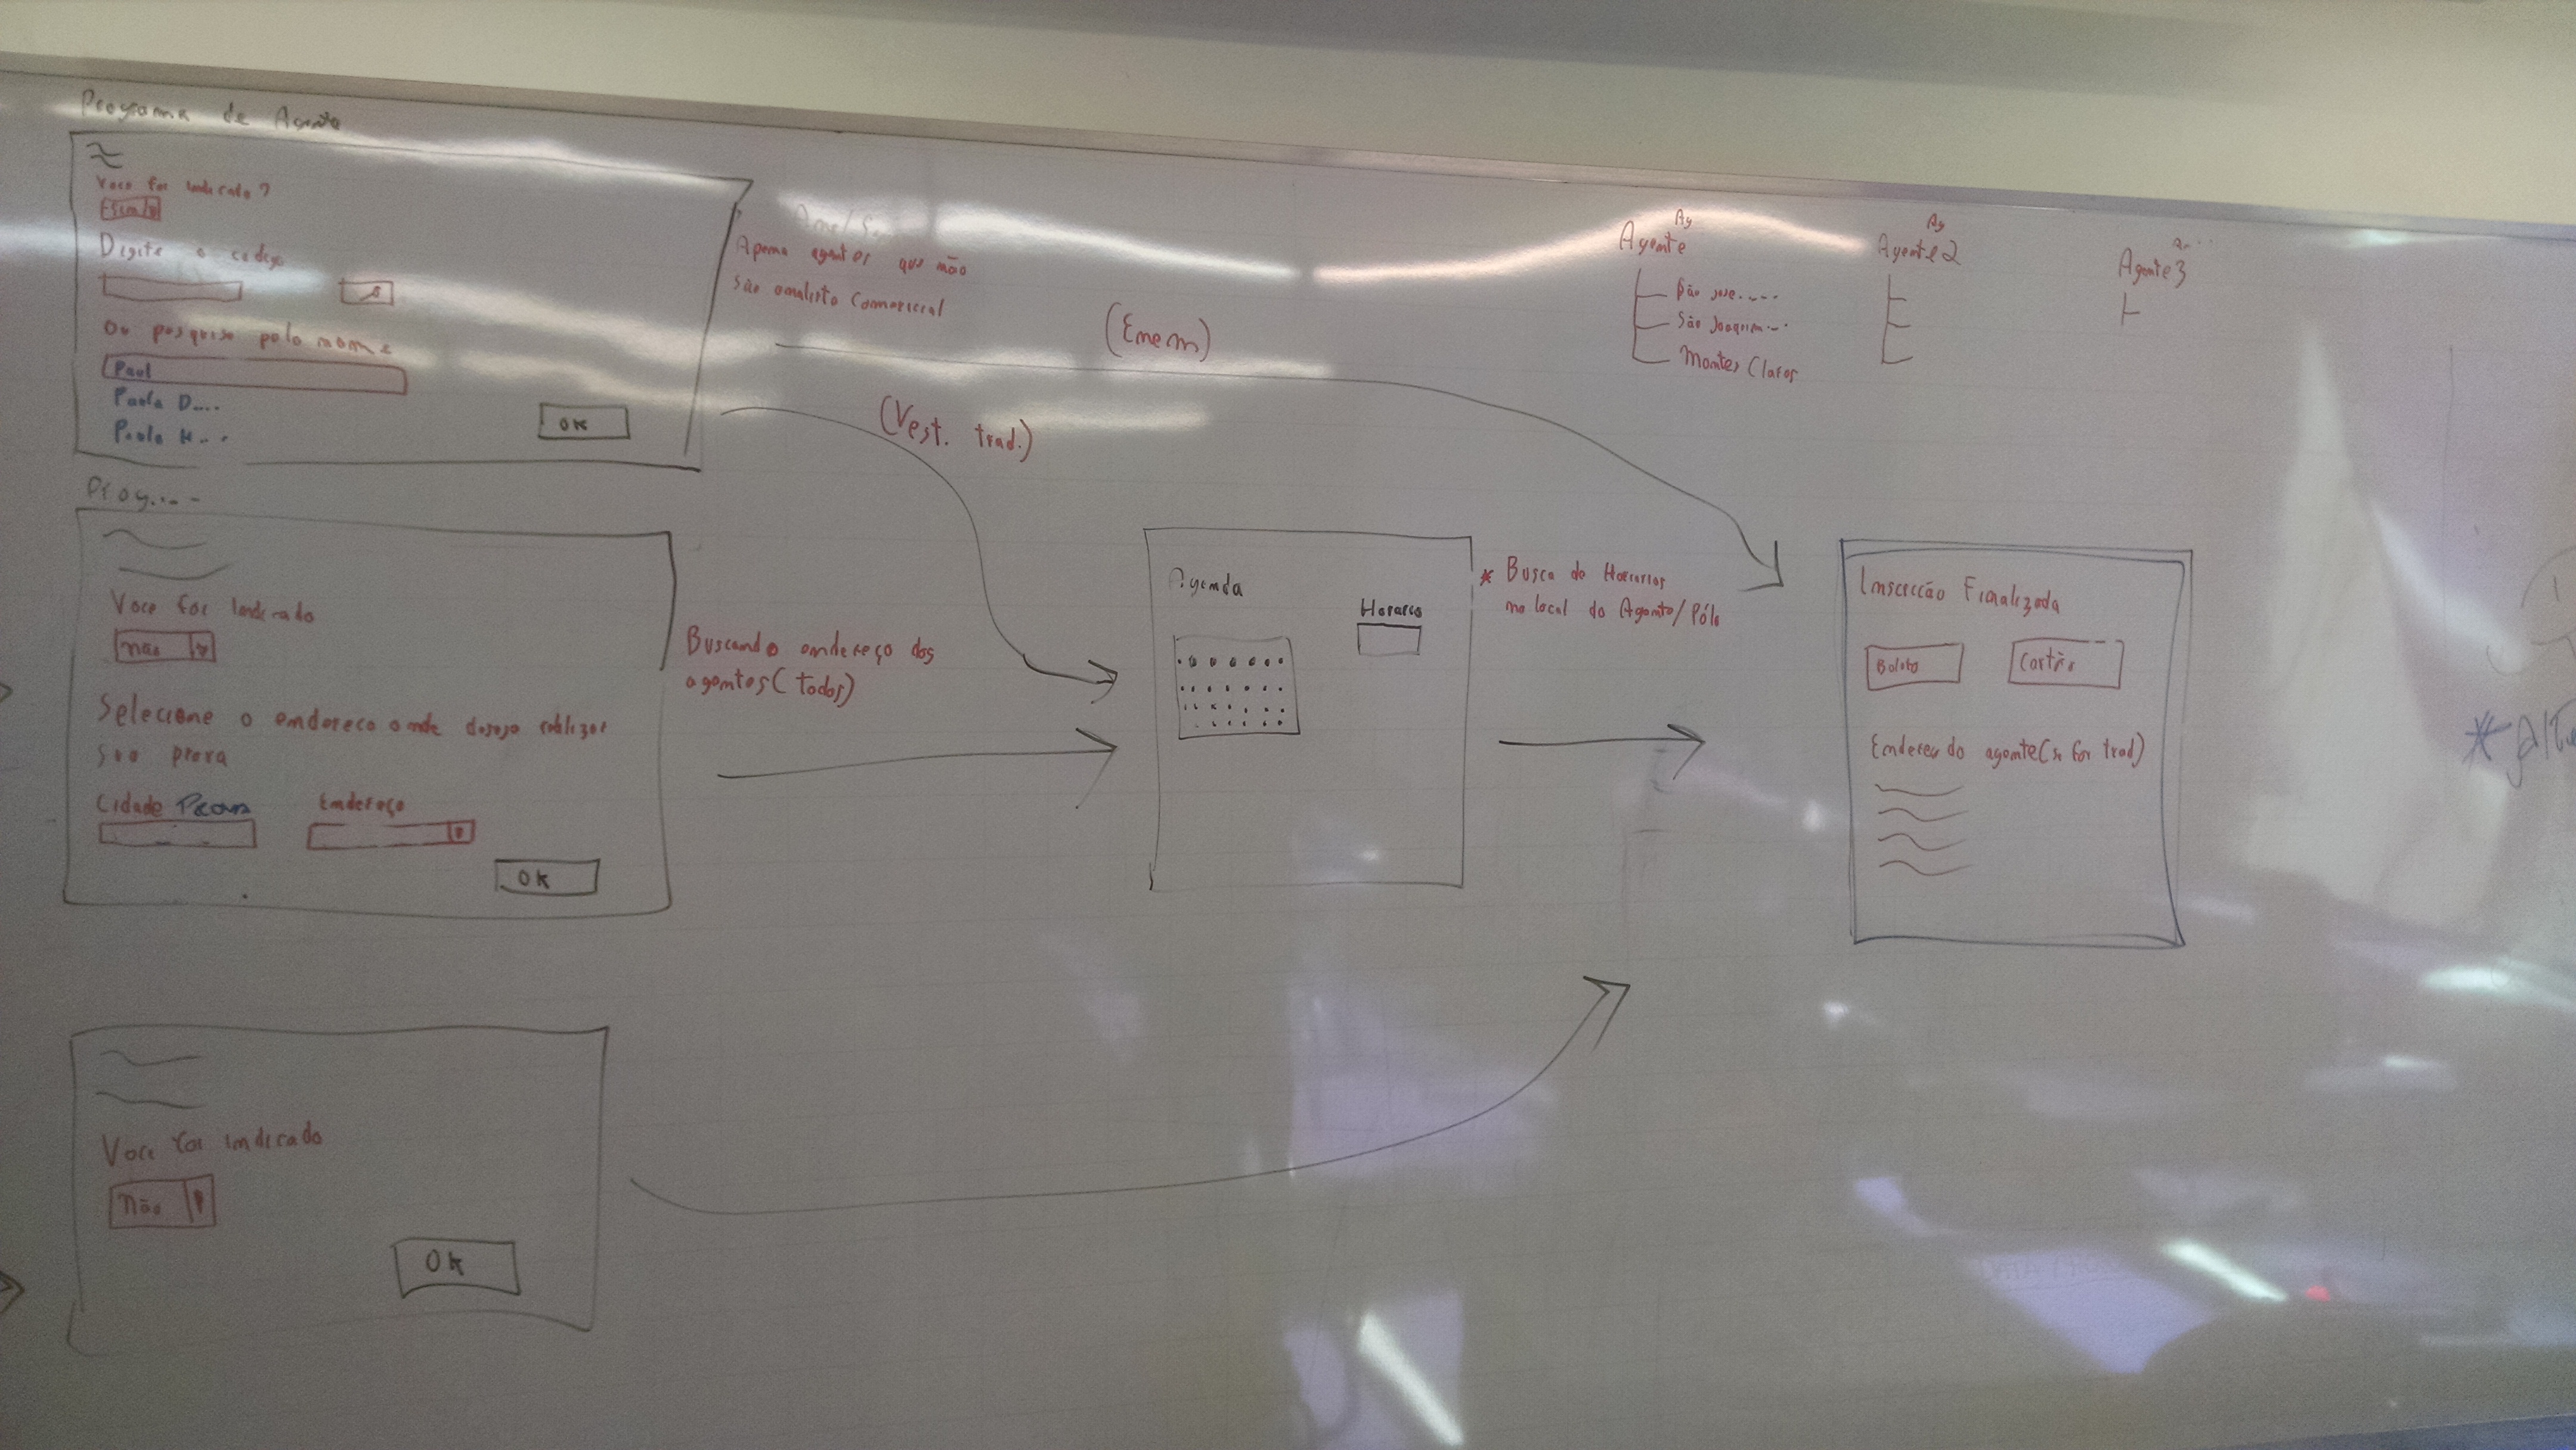 Programa de Agente
Voce foi indicado?
Digite o codigo
Ou pesquise pelo nome
Paul
Paula D....
Paula H...
OK
Apena agentes que não
são analista Comercical
(Enem)
(Vest. trad.)
Ag
Agente
São Jose.....
São Joaquim...
Montes Claros
Ag
Agente2
Agente3
Prog....-
Voce foi indicado
não
Selecione o endereco onde deseja realizar
sua prova
Cidade Prova
Endereço
OK
Buscando endereço dos
agentes(todos)
Agenda
Horario
* Busca de Horarios
no local do Agente/Pólo
Inscrição Finalizada
Boleto
Cartão
Endereço do agente(se for trad)
Voce foi indicado
não
OK